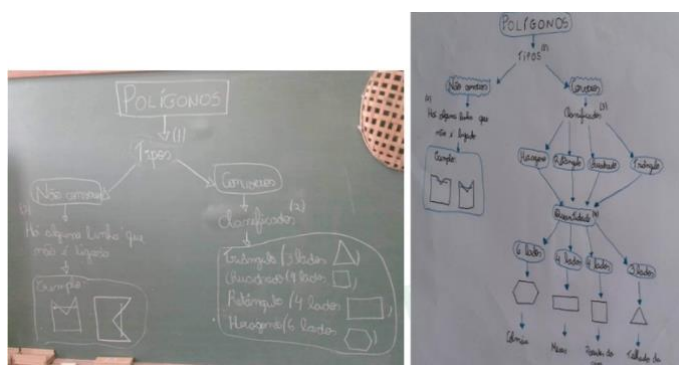 POLÍGONOS
(1)
Tipos
Não convexos
Convexos
(2)
Classificados
Há alguma linha que
não é ligado
Exemplo:
Triângulo/3 lados
Quadrado/4 lados
Retângulo/4 lados
Hexagono/6 lados
POLÍGONOS
Tipos
Não convexos
Convexos
Há alguma linha que
não é ligado
Exemplo:
Classificados
Hexagono
Retângulo
Quadrado
Triângulo
Quantidade
6 lados
4 lados
4 lados
3 lados
Telhado da